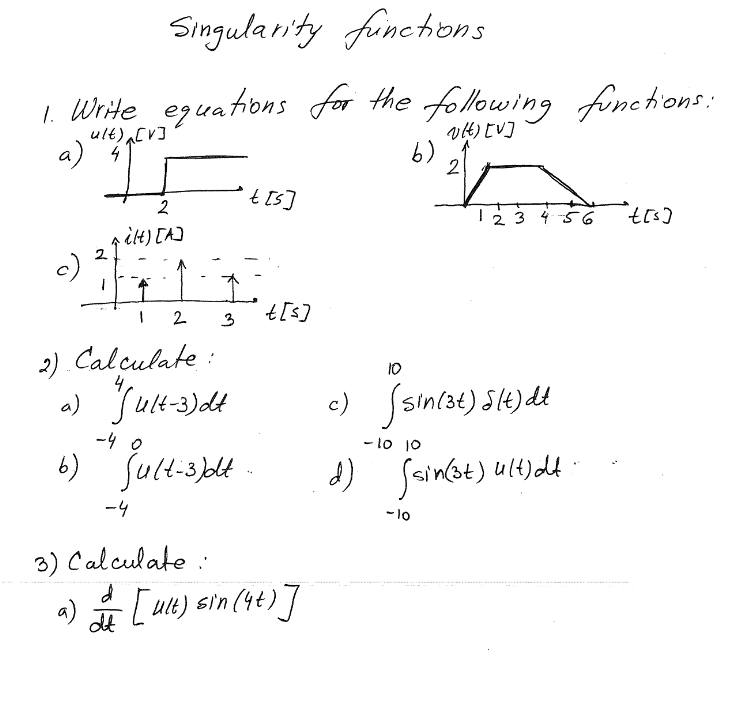 Singularity functions
1. Write equations for the following functions:
a) u(t) [V]
4
2
t [s]
b) v(t) [V]
2
1 2 3 4 5 6 t[s]
c) i(t) [A]
2
1
1 2 3 t[s]
2) Calculate :
a) ∫_{-4}^{4} u(t-3)dt
b) ∫_{-4}^{0} u(t-3)dt
c) ∫_{-10}^{10} sin(3t) δ(t) dt
d) ∫_{-10}^{10} sin(3t) u(t) dt
3) Calculate :
a) d/dt [ u(t) sin(4t) ]